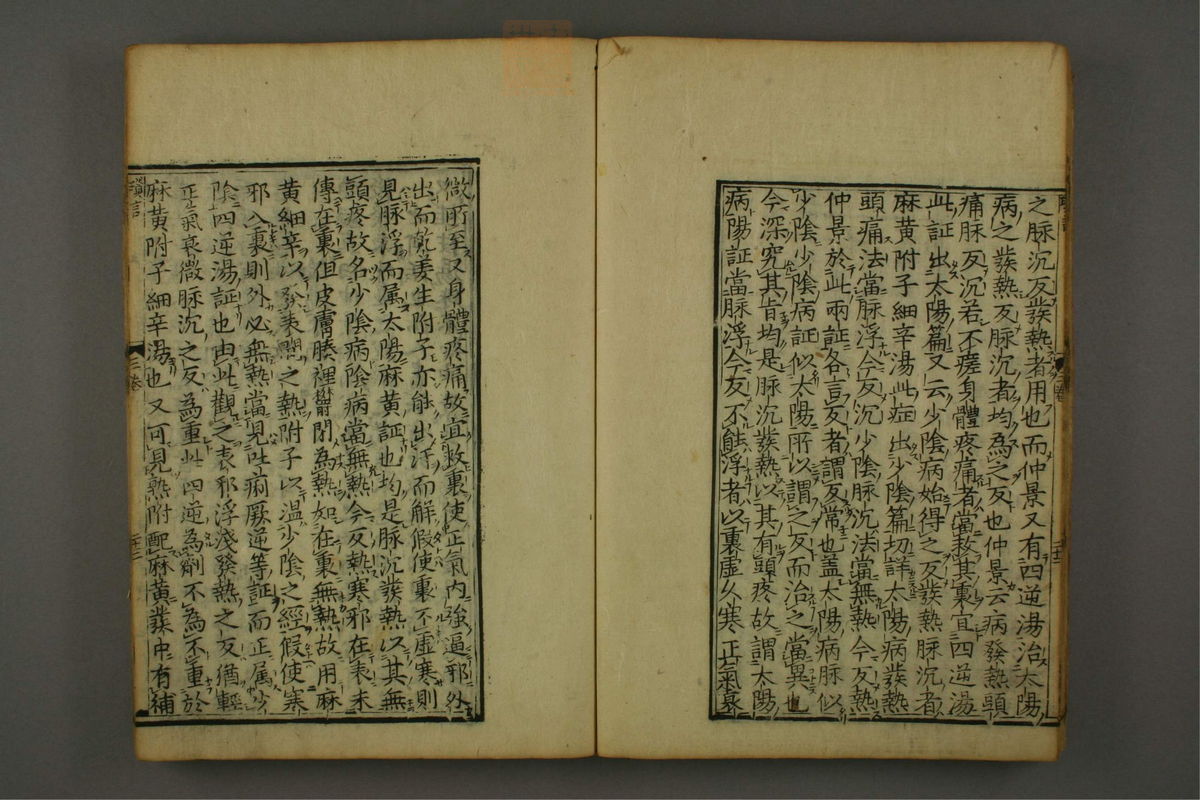 之脉沉反蕟熱者用也而仲景又有四逆湯治太陽
病之蕟熱反脉沉者均為之反也仲景云病發熱頭
痛脉反沉若不瘥身體疼痛者當救其裏宜四逆湯
此証出太陽篇又云少陰病始得之反蕟熱脉沉者
麻黄附子細辛湯此症出少陰篇切詳太陽病蕟熱
頭痛法當脉浮今反沉少陰脉沉法當無熱今反熱
仲景於此兩証各言反者謂反常也盖太陽病脉似
少陰少陰病証似太陽所以謂之反而治之當異也
今深究其旨均是脉沉蕟熱以其有頭疼故謂太陽
病陽証當脉浮今反不能浮者以裏虛久寒正氣衰
微所至又身體疼痛故宜救裏使正氣内強逼邪外
出而乾姜生附子亦能出汗而解假使裏不虛寒則
見脉浮而属太陽麻黄証也均是脉沉蕟熱以其無
頭疼故名少陰病陰病當無熱今反熱寒邪在表未
傳在裏但皮膚腠裡欝閉為熱如在裏無熱故用麻
黄細辛以發表間之熱附子以温少陰之經假使寒
邪入裏則外必無熱當見吐痢厥逆等証而正属少
陰四逆湯証也由此觀之表邪浮淺發熱之反猶輕
正氣衰微脉沉之反為重此四逆為劑不為不重於
麻黄附子細辛湯也又可見熟附配麻黄蕟中有補
三卷